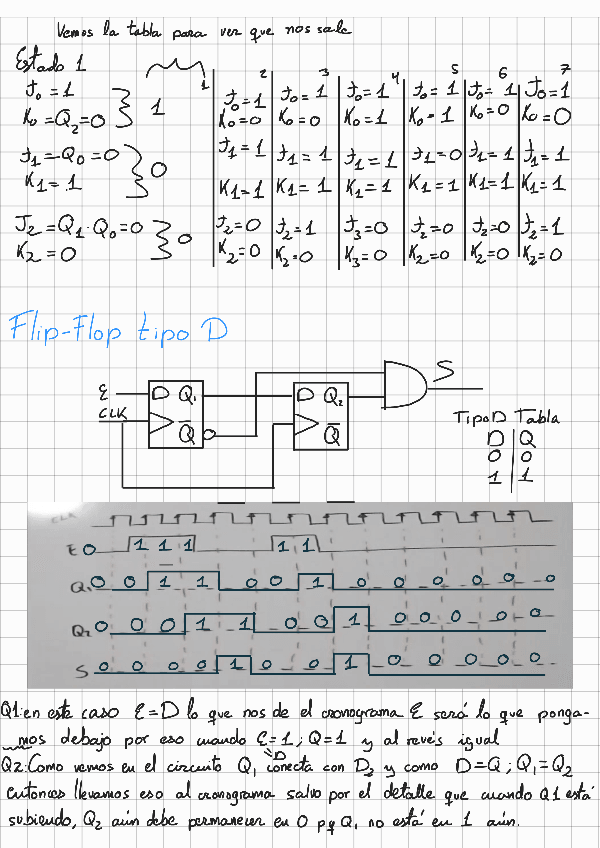 Vemos la tabla para ver que nos sale
Estado 1
J₀ = 1
K₀ = Q₂ = 0
1
J₁ = Q₀ = 0
K₁ = 1
0
J₂ = Q₁ · Q₀ = 0
K₂ = 0
0
1 2 3 4 5 6 7
J₀ = 1 J₀ = 1 J₀ = 1 J₀ = 1 J₀ = 1 J₀ = 1
K₀ = 0 K₀ = 0 K₀ = 1 K₀ = 1 K₀ = 0 K₀ = 0
J₁ = 1 J₁ = 1 J₁ = 1 J₁ = 0 J₁ = 1 J₁ = 1
K₁ = 1 K₁ = 1 K₁ = 1 K₁ = 1 K₁ = 1 K₁ = 1
J₂ = 0 J₂ = 1 J₃ = 0 J₂ = 0 J₂ = 0 J₂ = 1
K₂ = 0 K₂ = 0 K₃ = 0 K₂ = 0 K₂ = 0 K₂ = 0
Flip-Flop tipo D
E D Q₁ D Q₂ S
CLK Q̅ Q̅
Tipo D Tabla
D Q
0 0
1 1
CLK
E 0 1 1 1 1 1
Q₁ 0 0 1 1 0 0 1 0 0 0 0 0 0
Q₂ 0 0 0 1 1 0 0 1 0 0 0 0 0
S 0 0 0 0 1 0 0 1 0 0 0 0 0
Q1: en este caso E = D lo que nos de el cronograma E será lo que ponga-
mos debajo por eso cuando E = 1; Q = 1 y al revés igual
=D
Q2: Como vemos en el circuito Q₁ conecta con D₂ y como D = Q; Q₁ = Q₂
entonces llevamos eso al cronograma salvo por el detalle que cuando Q1 está
subiendo, Q₂ aún debe permanecer en 0 pq Q₁ no está en 1 aún.